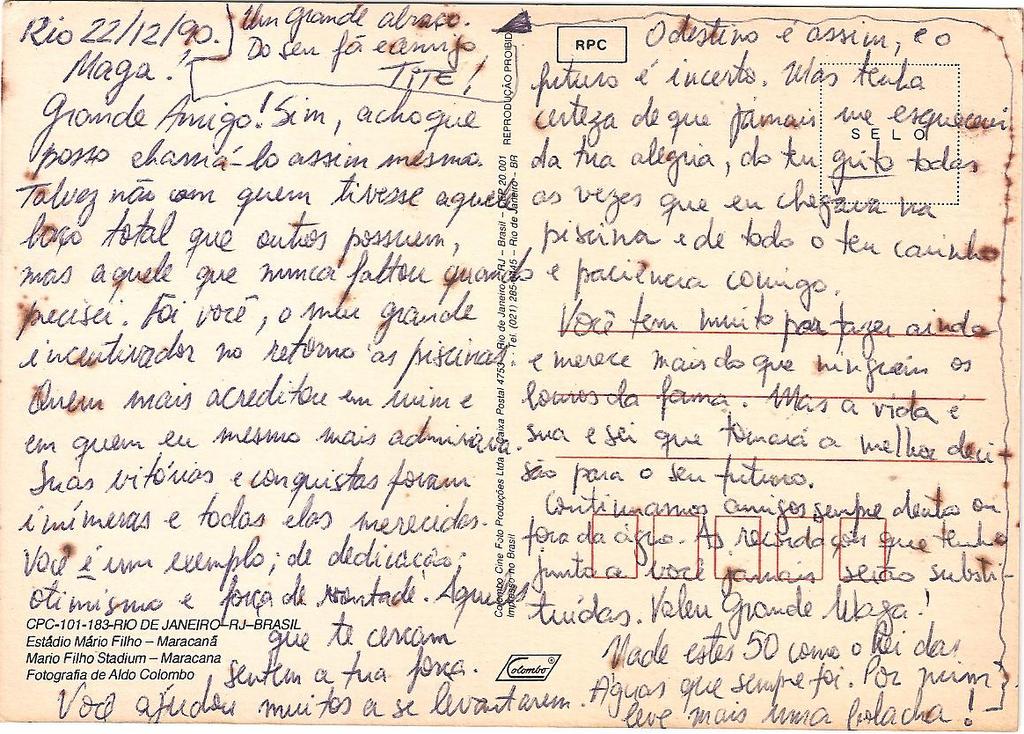 Rio 22/12/90.
Maga!
Grande Amigo! Sim, acho que
posso chamá-lo assim mesmo.
Talvez não com quem tivesse aquele
laço total que outros possuem,
mas aquele que nunca faltou quando
precisei. Foi você, o meu grande
incentivador no retorno as piscinas
Quem mais acreditou em mim e
em quem eu mesmo mais admirava.
Suas vitórias e conquistas foram
inúmeras e todas elas merecidas.
Você é um exemplo; de dedicação;
otimismo e força de vontade. Aqueles
que te cercam
sentem a tua força.
Você ajudou muitos a se levantarem.
O destino é assim, e o
futuro é incerto. Mas tenha
certeza de que jamais me esquecerei
da tua alegria, do teu grito todas
as vezes que eu chegava na
piscina e de todo o teu carinho
e paciência comigo.
Você tem muito por fazer ainda
e merece mais do que ninguém os
louros da fama. Mas a vida é
sua e sei que tomará a melhor deci-
são para o seu futuro.
Continuamos amigos sempre dentro ou
fora da água. As recordações que tenho
junto a você jamais serão substi-
tuídas. Valeu Grande Maga!
Nade estes 50 como o Rei das
Águas que sempre foi. Por mim
leve mais uma bolacha!
Um grande abraço.
Do seu fã e amigo
TITE!
RPC
SELO
CPC-101-183-RIO DE JANEIRO-RJ-BRASIL
Estádio Mário Filho – Maracanã
Mario Filho Stadium – Maracana
Fotografia de Aldo Colombo
Colombo
Colombo Cine Foto Produções Ltda - Caixa Postal 4753 - Rio de Janeiro - RJ - Brasil - CEP 20.001 REPRODUÇÃO PROIBID
Impresso no Brasil Tel. (021) Rio de Janeiro - BR